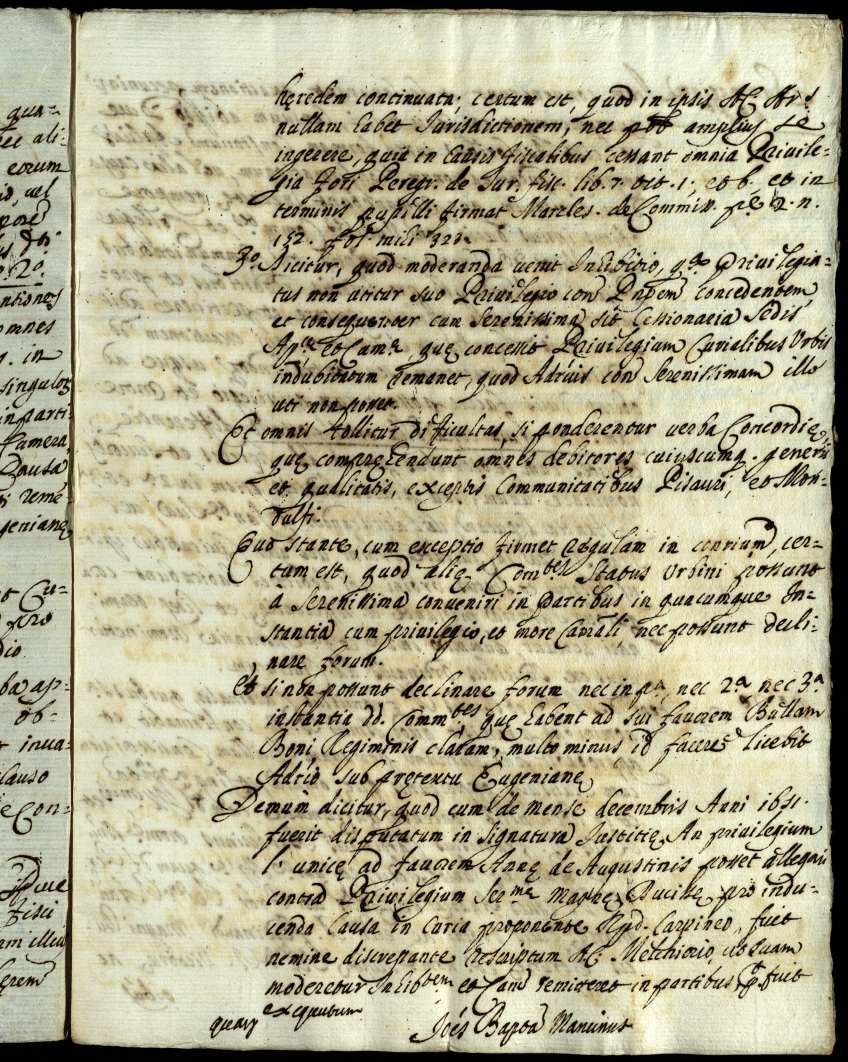 qua=
nec ali-
eorum
io, vel
ntiones
omnes
in
singulos
in parti-
Camera,
Causa
ti reme-
geniane
Cu-
pro
dio.
ba ap-
ob-
inva-
lauso
e Con-
Due
Fisci
am illius
hęredem continuata; certum est, quod in ipsis AC
nullam habet Jurisdictionem, nec amplius se
ingerere, quia in Causis fiscalibus cessant omnia Privile-
gia fori Peregr. de Jur. fisc. lib. 7. tit. 1. et 6. et in
terminis pupilli firmat Marzles. de Commiss. pe 2. n.
152. fol. mihi 323.
3o. Dicitur, quod moderanda venit Inhibitio, qa Privilegia-
tus non utitur suo Privilegio con Pnpem concedentem,
et consequenter cum Serenissima sit Cessionaria Sedis
Apcę et Camę, quę concessit Privilegium Curialibus Urbis
indubitatum remanet, quod Adriüs con Serenissimam illo
uti non posset.
Et omnis tollitur difficultas, si ponderentur verba Concordię,
quę comprehendunt omnes debitores cuiuscumq. generis
et qualitatis, exceptis Communitatibus Pisauri, et Mon-
dulfi.
Quo stante, cum exceptio firmet regulam in conrium, cer-
tum est, quod alię Comtes Status Urbini possunt
à Serenissima conveniri in partibus in quacumque In-
stantia cum privilegio, et more Camrali, nec possunt decli-
nare forum.
Et si non possunt declinare forum nec in pa, nec 2a nec 3a
instantia dd. Commtes quę habent ad sui favorem Bullam
Boni Regiminis claram, multo minus id facere licebit
Adrio sub prętextu Eugenianę
Demum dicitur, quod cum de mense decembris Anni 1651.
fuerit disputatum in Signatura Justitię, An privilegium
l. unicę ad favorem Annę de Augustinis posset allegari
contra Privilegium Sermę Magnę Ducissę pro indu-
cenda Causa in Curia proponente Rmd. Carpineo, fuit
nemine discrepante rescriptum AC Melchiorio, ut suam
moderetur Inhibtem et Cam remitteret in partibus pt fuit
exequutum
quarę Joẽs Bapta Mancinus